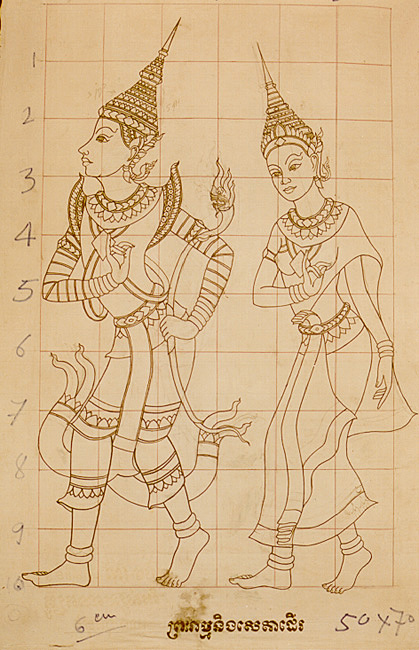 1
2
3
4
5
6
7
8
9
10
6 cm
ព្រះរាម្មនិងសេតាដើរ
50x70